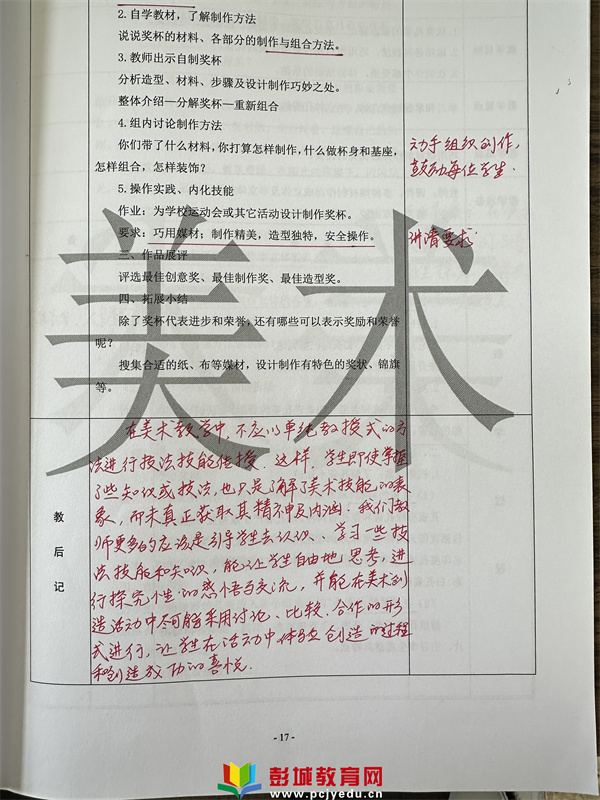 2. 自学教材，了解制作方法
说说奖杯的材料、各部分的制作与组合方法。
3. 教师出示自制奖杯
分析造型、材料、步骤及设计制作巧妙之处。
整体介绍—分解奖杯—重新组合
4. 组内讨论制作方法
你们带了什么材料，你打算怎样制作，什么做杯身和基座，
怎样组合，怎样装饰？
动手组织创作，
鼓励每位学生.
5. 操作实践、内化技能
作业：为学校运动会或其它活动设计制作奖杯。
要求：巧用媒材；制作精美，造型独特，安全操作。
讲清要求
三、作品展评
评选最佳创意奖、最佳制作奖、最佳造型奖。
四、拓展小结
除了奖杯代表进步和荣誉，还有哪些可以表示奖励和荣誉
呢？
搜集合适的纸、布等媒材，设计制作有特色的奖状、锦旗
等。
美术
教后记
在美术教学中,不应以单纯教授式的方
法进行技法技能传授.这样,学生即使掌握
了些知识或技法,也只是了解了美术技能的表
象,而未真正获取其精神及内涵.我们教
师更多的应该是引导学生去认识、学习一些技
法技能和知识,能让学生自由地思考,进
行探究个性的感悟与交流,并能在美术创
造活动中尽可能采用讨论、比较、合作的形
式进行,让学生在活动中体验创造的过程
和创造成功的喜悦.
- 17 -
彭城教育网
www.pcjyedu.cn